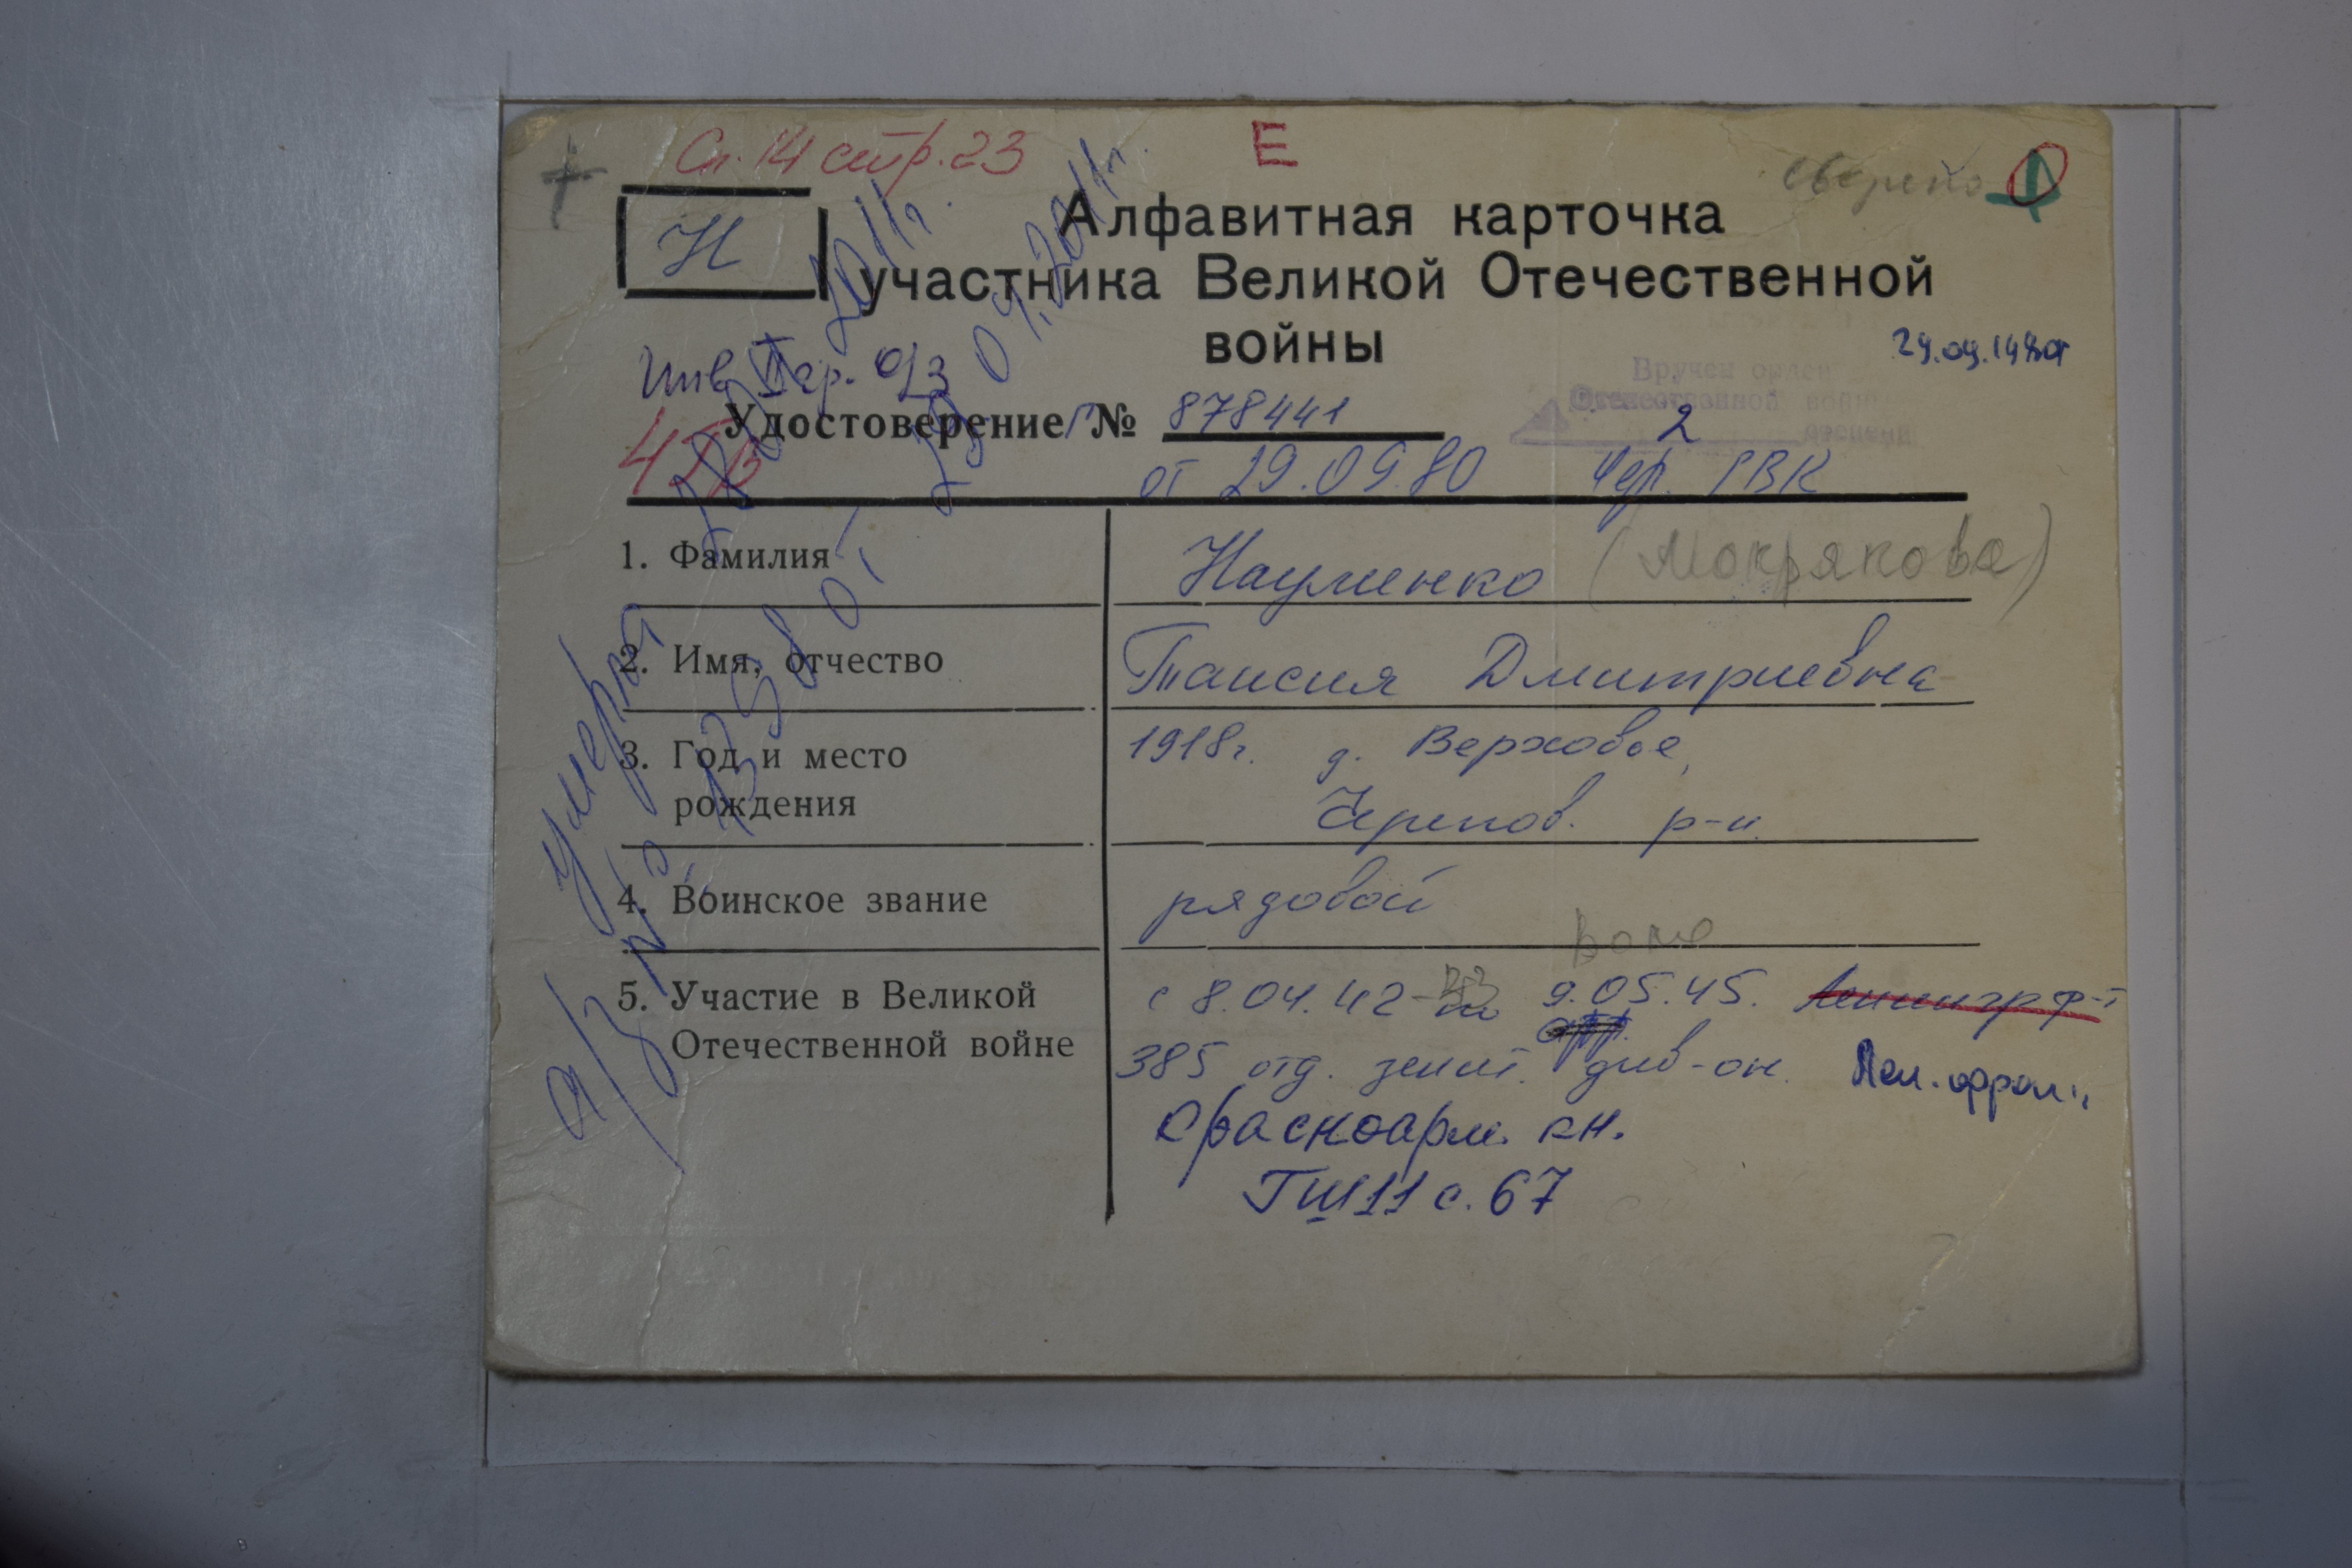 Сп. 14 стр. 23
Е
сверено
Н
Алфавитная карточка
участника Великой Отечественной
войны
Инв II гр. о/з
Вручен орден
Отечественной войны
2 степени
Удостоверение Г № 878441
от 29.09.80 Чер. РВК
1. Фамилия Науменко (Мокрякова)
2. Имя, отчество Таисия Дмитриевна
3. Год и место рождения 1918г. д. Верховье,
Черепов. р-н.
4. Воинское звание рядовой
5. Участие в Великой Отечественной войне с 8.04.42 - по 9.05.45. Ленингр ф-т
385 отд. зенит. див-он. Лен. фрон.
Красноарм. кн.
ГШ 11 с. 67
умерла
а/з №